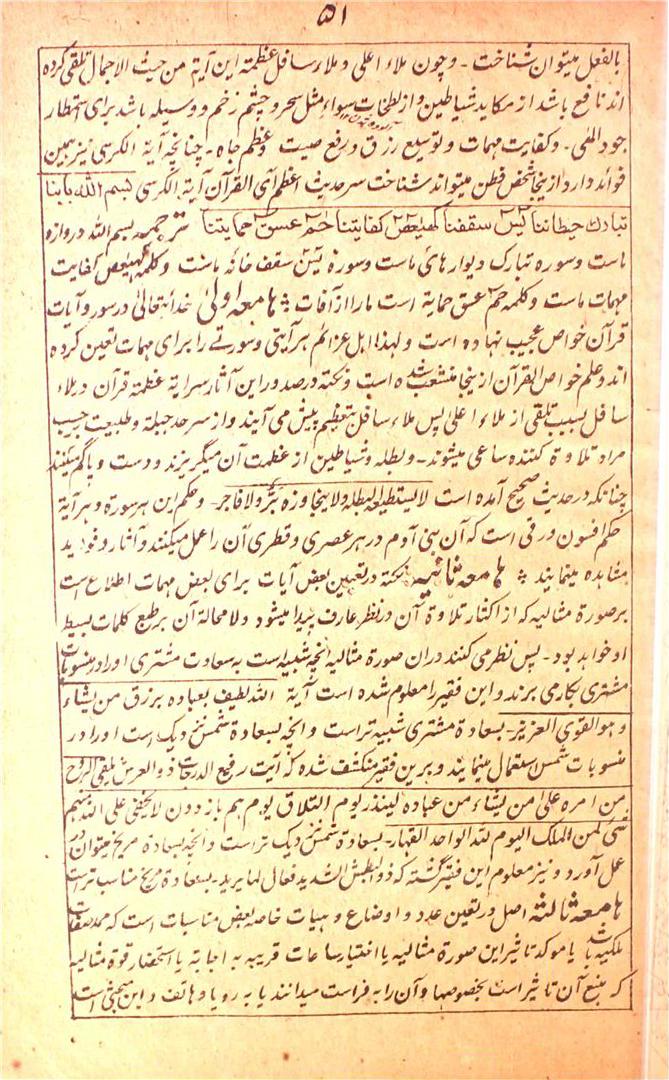 ۵۱
بالفعل میتوان شناخت - و چون ملاء اعلی و ملاء سافل عظمته این آیة من حیث الاجمال تلقی کرده
اند نافع باشد از مکاید شیاطین و از لطخات سواء مثل سحر و چشم زخم و وسیله باشد برای استمطار
جود الهی - و کفایت مهمات و توسیع رزق و رفع صیت و عظم جاه - چنانچه آیة الکرسی نیز همین
فوائد دارد ازینجا شخص فطن میتواند شناخت سر حدیث اعظم آی القرآن آیة الکرسی بسم الله بابنا
تبارک حیطاننا یٰس سقفنا کهیعص کفایتنا حم عسق حمایتنا ترجمه بسم الله دروازه
ماست و سوره تبارک دیوارهای ماست و سوره یٰس سقف خانه ماست و کلمه کهیعص کفایت
مهمات ماست و کلمه حم عسق حمایة است ما را از آفات ؛ هامعه اولیٰ خدائتعالیٰ در سور و آیات
قرآن خواص عجیب نهاده است و لهذا اهل عزائم هر آیتی و سورتے را برای مهمات تعین کرده
اند و علم خواص القرآن ازینجا منشعب شده است و نکته در صدور این آثار سرایة عظمته قرآن در ملاء
سافل بسبب تلقی از ملاء اعلیٰ پس ملاء سافل بتعظیم پیش می آیند و از سر حد جبلة و طبیعت حسب
مراد تلاوة کننده ساعی میشوند - و بطله و شیاطین از عظمت آن میگریزند و دست و پا گم میکنند
چنانکه در حدیث صحیح آمده است لا یستطیعها البطلة و لا یجاوزه بر و لا فاجر - و حکم این هر سورة و هر آیة
حکم افسون و رقی است که آن بنی آدم در هر عصری و قطری آن را عمل میکنند و آثار و فود بد
مشاهده مینمایند ؛ هامعه ثانیه نکته در تعیین بعض آیات برای بعض مهمات اطلاع است
بر صورة مثالیه که از اکثار تلاوة آن در نظر عارف پیدا میشود و لامحالة آن بر طبع کلمات بسیط
او خواهد بود - پس نظر می کنند در آن صورة مثالیه انچه شبیه است به سعادت مشتری او را در منسوبات
مشتری بکار می برند و این فقیر را معلوم شده است آیة الله لطیف بعباده یرزق من یشاء
و هو القوی العزیز - بسعادة مشتری شبیه تر است و انچه بسعادة شمس نزدیک است او را در
منسوبات شمس استعمال مینمایند و برین فقیر منکشف شده که آیت رفیع الدرجات ذو العرش یلقی الروح
من امره علیٰ من یشاء من عباده لینذر یوم التلاق یوم هم بارزون لا یخفی علی الله منهم
شئ لمن الملک الیوم لله الواحد القهار - بسعادة شمس نزدیک تر است و انچه بسعادة مریخ میتوان در
عمل آورد و نیز معلوم این فقیر گشته که ذو البطش الشدید فعال لما یرید - بسعادة مریخ مناسب تر است
هامعه ثالثه اصل در تعین عدد و اوضاع و هیات خاصه بعض مناسبات است که ممد صفات
ملکیه باشد یا موکد تاثیر این صورة مثالیه یا اختیار ساعات قریبه به اجابة یا استحضار قوة مثالیه
که منبع آن تاثیر است بخصوصها و آن را به فراست میدانند یا به رویا و هاتف و این مبحثی است